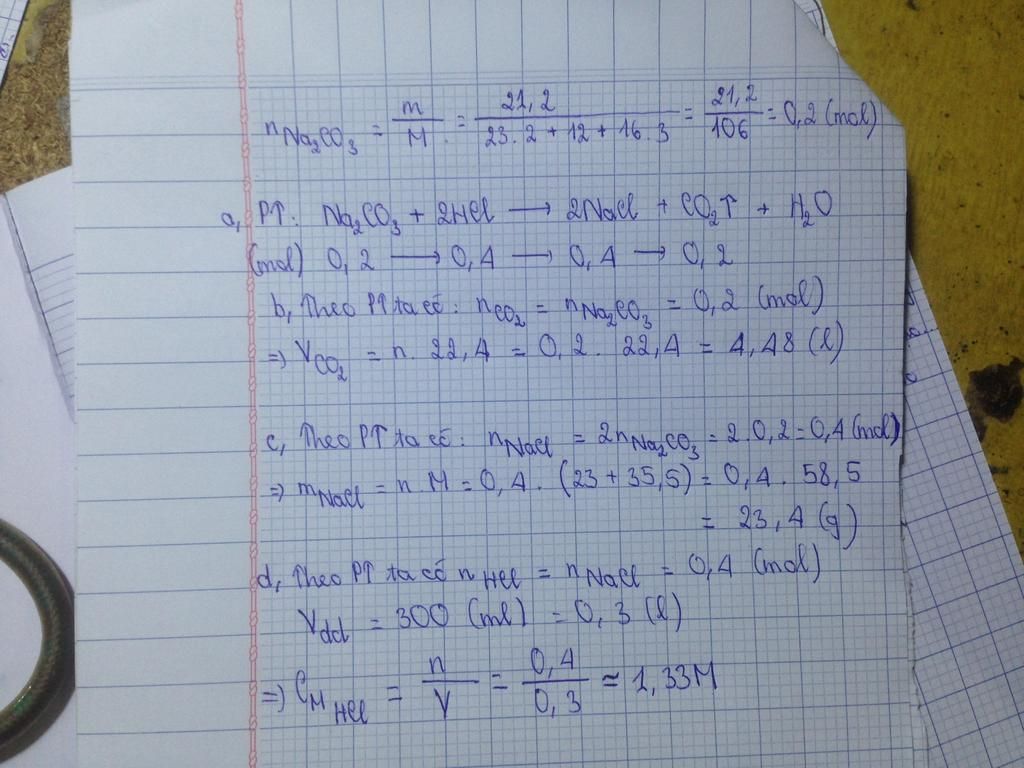 nNa₂CO₃ = m/M = 21,2/(23.2 + 12 + 16.3) = 21,2/106 = 0,2 (mol)
a, PT: Na₂CO₃ + 2HCl → 2NaCl + CO₂↑ + H₂O
(mol) 0,2 → 0,4 → 0,4 → 0,2
b, Theo PT ta có: nCO₂ = nNa₂CO₃ = 0,2 (mol)
=> VCO₂ = n. 22,4 = 0,2. 22,4 = 4,48 (l)
c, Theo PT ta có: nNaCl = 2nNa₂CO₃ = 2.0,2 = 0,4 (mol)
=> mNaCl = n.M = 0,4. (23 + 35,5) = 0,4. 58,5
= 23,4 (g)
d, Theo PT ta có nHCl = nNaCl = 0,4 (mol)
Vdd = 300 (ml) = 0,3 (l)
=> CM HCl = n/V = 0,4/0,3 ≈ 1,33M